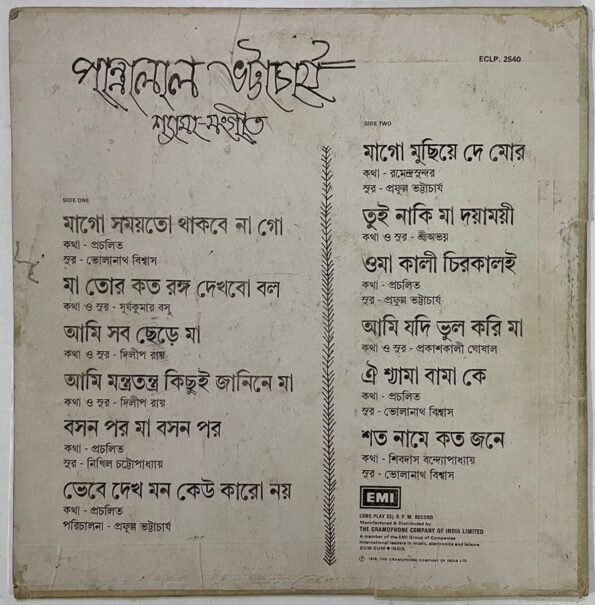 পান্নালাল ভট্টাচার্য
শ্যামা-সংগীত
ECLP. 2540
SIDE ONE
মাগো সময়তো থাকবে না গো
কথা - প্রচলিত
সুর - ভোলানাথ বিশ্বাস
মা তোর কত রঙ্গ দেখবো বল
কথা ও সুর - সূর্যকুমার বসু
আমি সব ছেড়ে মা
কথা ও সুর - দিলীপ রায়
আমি মন্ত্রতন্ত্র কিছুই জানিনে মা
কথা ও সুর - দিলীপ রায়
বসন পর মা বসন পর
কথা - প্রচলিত
সুর - নিখিল চট্টোপাধ্যায়
ভেবে দেখ মন কেউ কারো নয়
কথা - প্রচলিত
পরিচালনা - প্রফুল্ল ভট্টাচার্য
SIDE TWO
মাগো মুছিয়ে দে মোর
কথা - রমেন্দ্রসুন্দর
সুর - প্রফুল্ল ভট্টাচার্য
তুই নাকি মা দয়াময়ী
কথা ও সুর - শ্রীঅভয়
ওমা কালী চিরকালই
কথা - প্রচলিত
সুর - প্রফুল্ল ভট্টাচার্য
আমি যদি ভুল করি মা
কথা ও সুর - প্রকাশকালী ঘোষাল
ঐ শ্যামা বামা কে
কথা - প্রচলিত
সুর - ভোলানাথ বিশ্বাস
শত নামে কত জনে
কথা - শিবদাস বন্দ্যোপাধ্যায়
সুর - ভোলানাথ বিশ্বাস
EMI
LONG PLAY 33⅓ R. P. M. RECORD
Manufactured & Distributed by
THE GRAMOPHONE COMPANY OF INDIA LIMITED
A member of the EMI Group of Companies
International leaders in music, electronics and leisure
DUM DUM ● INDIA
Ⓟ 1976 THE GRAMOPHONE COMPANY OF INDIA LTD.